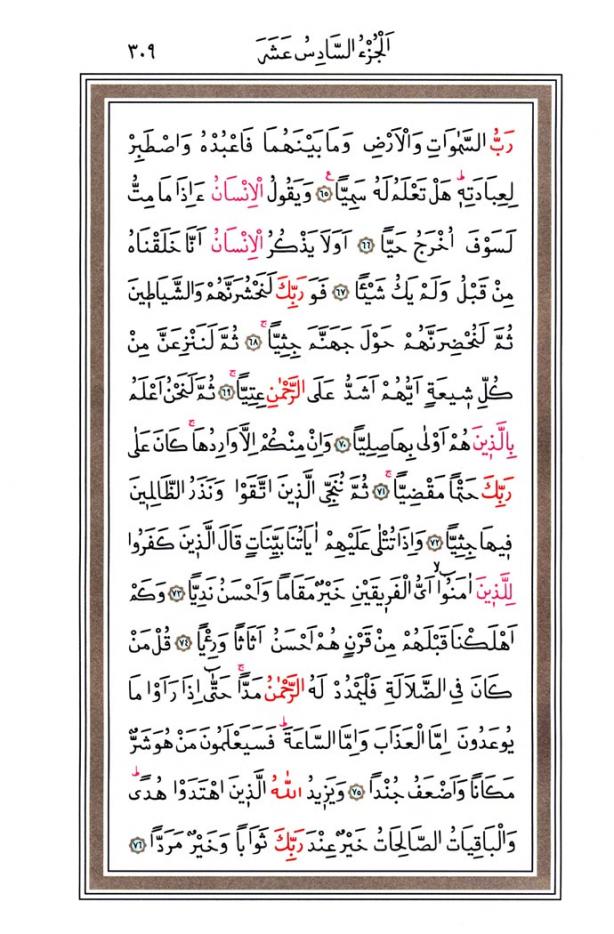 اَلْجُزْءُ السَّادِسُ عَشَرَ
٣٠٩
رَبُّ السَّمٰوَاتِ وَالْاَرْضِ وَمَا بَيْنَهُمَا فَاعْبُدْهُ وَاصْطَبِرْ
لِعِبَادَتِهٖۜ هَلْ تَعْلَمُ لَهُ سَمِيًّا ﴿٦٥﴾ وَيَقُولُ الْاِنْسَانُ ءَاِذَا مَا مِتُّ
لَسَوْفَ اُخْرَجُ حَيًّا ﴿٦٦﴾ اَوَلَا يَذْكُرُ الْاِنْسَانُ اَنَّا خَلَقْنَاهُ
مِنْ قَبْلُ وَلَمْ يَكُ شَيْـًٔا ﴿٦٧﴾ فَوَ رَبِّكَ لَنَحْشُرَنَّهُمْ وَالشَّيَاطٖينَ
ثُمَّ لَنُحْضِرَنَّهُمْ حَوْلَ جَهَنَّمَ جِثِيًّاۚ ﴿٦٨﴾ ثُمَّ لَنَنْزِعَنَّ مِنْ
كُلِّ شٖيعَةٍ اَيُّهُمْ اَشَدُّ عَلَى الرَّحْمٰنِ عِتِيًّاۚ ﴿٦٩﴾ ثُمَّ لَنَحْنُ اَعْلَمُ
بِالَّذٖينَ هُمْ اَوْلٰى بِهَا صِلِيًّا ﴿٧٠﴾ وَاِنْ مِنْكُمْ اِلَّا وَارِدُهَاۚ كَانَ عَلٰى
رَبِّكَ حَتْمًا مَقْضِيًّاۚ ﴿٧١﴾ ثُمَّ نُنَجِّي الَّذٖينَ اتَّقَوْا وَنَذَرُ الظَّالِمٖينَ
فٖيهَا جِثِيًّا ﴿٧٢﴾ وَاِذَا تُتْلٰى عَلَيْهِمْ اٰيَاتُنَا بَيِّنَاتٍ قَالَ الَّذٖينَ كَفَرُوا
لِلَّذٖينَ اٰمَنُٓواۙ اَيُّ الْفَرٖيقَيْنِ خَيْرٌ مَقَامًا وَاَحْسَنُ نَدِيًّا ﴿٧٣﴾ وَكَمْ
اَهْلَكْنَا قَبْلَهُمْ مِنْ قَرْنٍ هُمْ اَحْسَنُ اَثَاثًا وَرِءْيًا ﴿٧٤﴾ قُلْ مَنْ
كَانَ فِي الضَّلَالَةِ فَلْيَمْدُدْ لَهُ الرَّحْمٰنُ مَدًّاۚ حَتّٰٓى اِذَا رَاَوْا مَا
يُوعَدُونَ اِمَّا الْعَذَابَ وَاِمَّا السَّاعَةَۜ فَسَيَعْلَمُونَ مَنْ هُوَ شَرٌّ
مَكَانًا وَاَضْعَفُ جُنْدًا ﴿٧٥﴾ وَيَزٖيدُ اللّٰهُ الَّذٖينَ اهْتَدَوْا هُدًىۜ
وَالْبَاقِيَاتُ الصَّالِحَاتُ خَيْرٌ عِنْدَ رَبِّكَ ثَوَابًا وَخَيْرٌ مَرَدًّا ﴿٧٦﴾